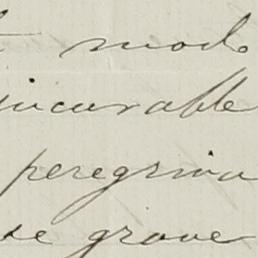 modo
incurable
peregrina
se grave